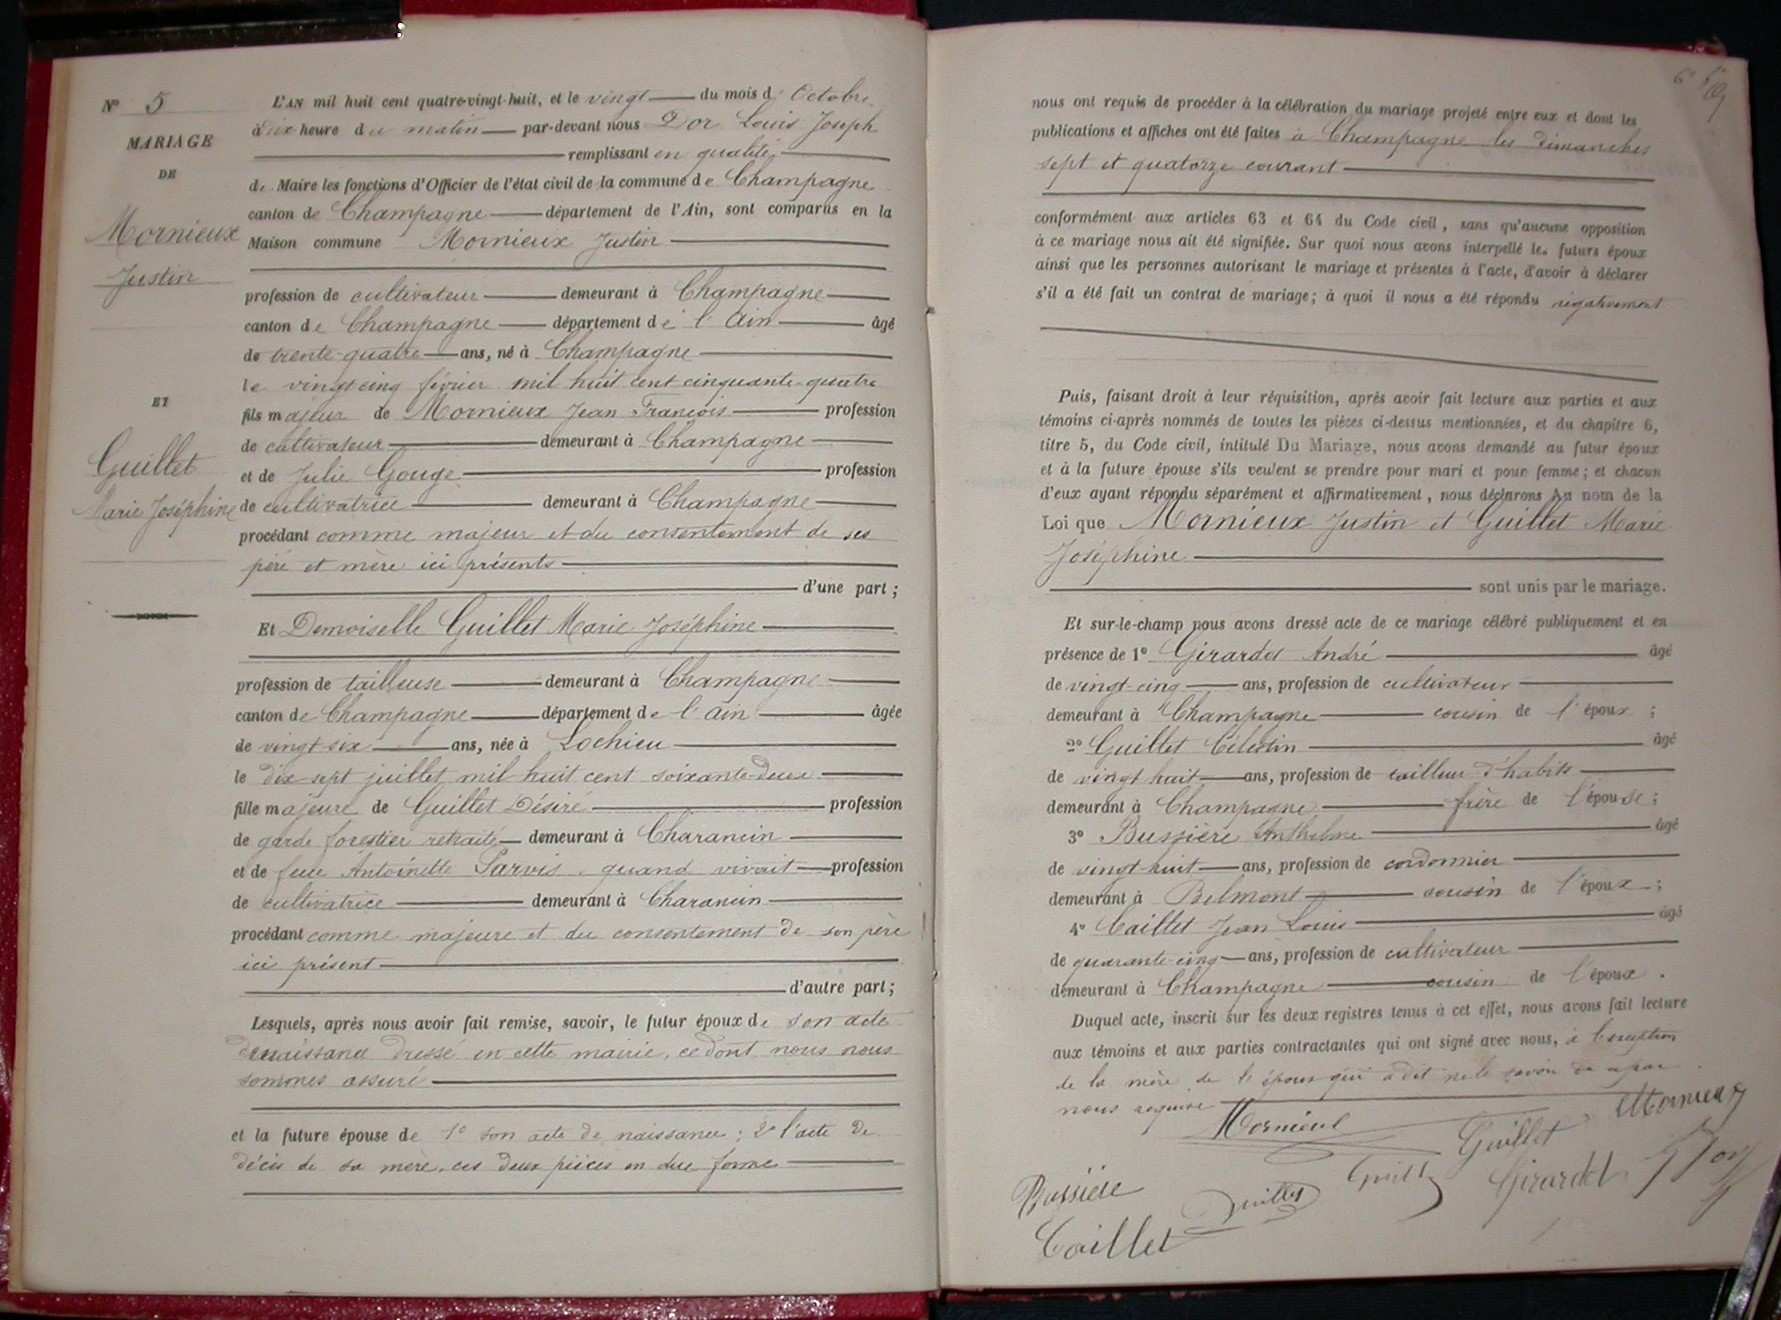 N° 5
MARIAGE
DE
Mornieux
Justin
ET
Guillet
Marie Joséphine
L'AN mil huit cent quatre-vingt-huit, et le vingt du mois d'Octobre
à dix heure du matin par-devant nous Dor Louis Joseph
remplissant en qualité
de Maire les fonctions d'Officier de l'état civil de la commune de Champagne
canton de Champagne département de l'Ain, sont comparus en la
Maison commune Mornieux Justin
profession de cultivateur demeurant à Champagne
canton de Champagne département de l'Ain âgé
de trente-quatre ans, né à Champagne
le vingt cinq février mil huit cent cinquante-quatre
fils majeur de Mornieux Jean François profession
de cultivateur demeurant à Champagne
et de Julie Gouge profession
de cultivatrice demeurant à Champagne
procédant comme majeur et du consentement de ses
père et mère ici présents
d'une part ;
Et Demoiselle Guillet Marie Joséphine
profession de tailleuse demeurant à Champagne
canton de Champagne département de l'Ain âgée
de vingt-six ans, née à Lochieu
le dix-sept juillet mil huit cent soixante-deux
fille majeure de Guillet Désiré profession
de garde forestier retraité demeurant à Charancin
et de feue Antoinette Sarvis quand vivait profession
de cultivatrice demeurant à Charancin
procédant comme majeure et du consentement de son père
ici présent
d'autre part ;
Lesquels, après nous avoir fait remise, savoir, le futur époux de son acte
de naissance dressé en cette mairie, ce dont nous nous
sommes assuré
et la future épouse de 1° son acte de naissance ; 2° l'acte de
décès de sa mère, ces deux pièces en due forme
nous ont requis de procéder à la célébration du mariage projeté entre eux et dont les
publications et affiches ont été faites à Champagne les dimanches
sept et quatorze courant
conformément aux articles 63 et 64 du Code civil, sans qu'aucune opposition
à ce mariage nous ait été signifiée. Sur quoi nous avons interpellé les futurs époux
ainsi que les personnes autorisant le mariage et présentes à l'acte, d'avoir à déclarer
s'il a été fait un contrat de mariage ; à quoi il nous a été répondu négativement
Puis, faisant droit à leur réquisition, après avoir fait lecture aux parties et aux
témoins ci-après nommés de toutes les pièces ci-dessus mentionnées, et du chapitre 6,
titre 5, du Code civil, intitulé Du Mariage, nous avons demandé au futur époux
et à la future épouse s'ils veulent se prendre pour mari et pour femme ; et chacun
d'eux ayant répondu séparément et affirmativement, nous déclarons Au nom de la
Loi que Mornieux Justin et Guillet Marie
Joséphine
sont unis par le mariage.
Et sur-le-champ nous avons dressé acte de ce mariage célébré publiquement et en
présence de 1° Girardet André âgé
de vingt-cinq ans, profession de cultivateur
demeurant à Champagne cousin de l'époux ;
2° Guillet Célestin âgé
de vingt huit ans, profession de tailleur d'habits
demeurant à Champagne frère de l'épouse ;
3° Bussière Anthelme âgé
de vingt-huit ans, profession de cordonnier
demeurant à Belmont cousin de l'époux ;
4° Caillet Jean Louis âgé
de quarante-cinq ans, profession de cultivateur
demeurant à Champagne cousin de l'époux.
Duquel acte, inscrit sur les deux registres tenus à cet effet, nous avons fait lecture
aux témoins et aux parties contractantes qui ont signé avec nous, à l'exception
de la mère de l'époux qui a dit ne le savoir de a par
nous requise
Mornieux Guillet Mornieux
Bussière Guillet Girardet Dor
Caillet